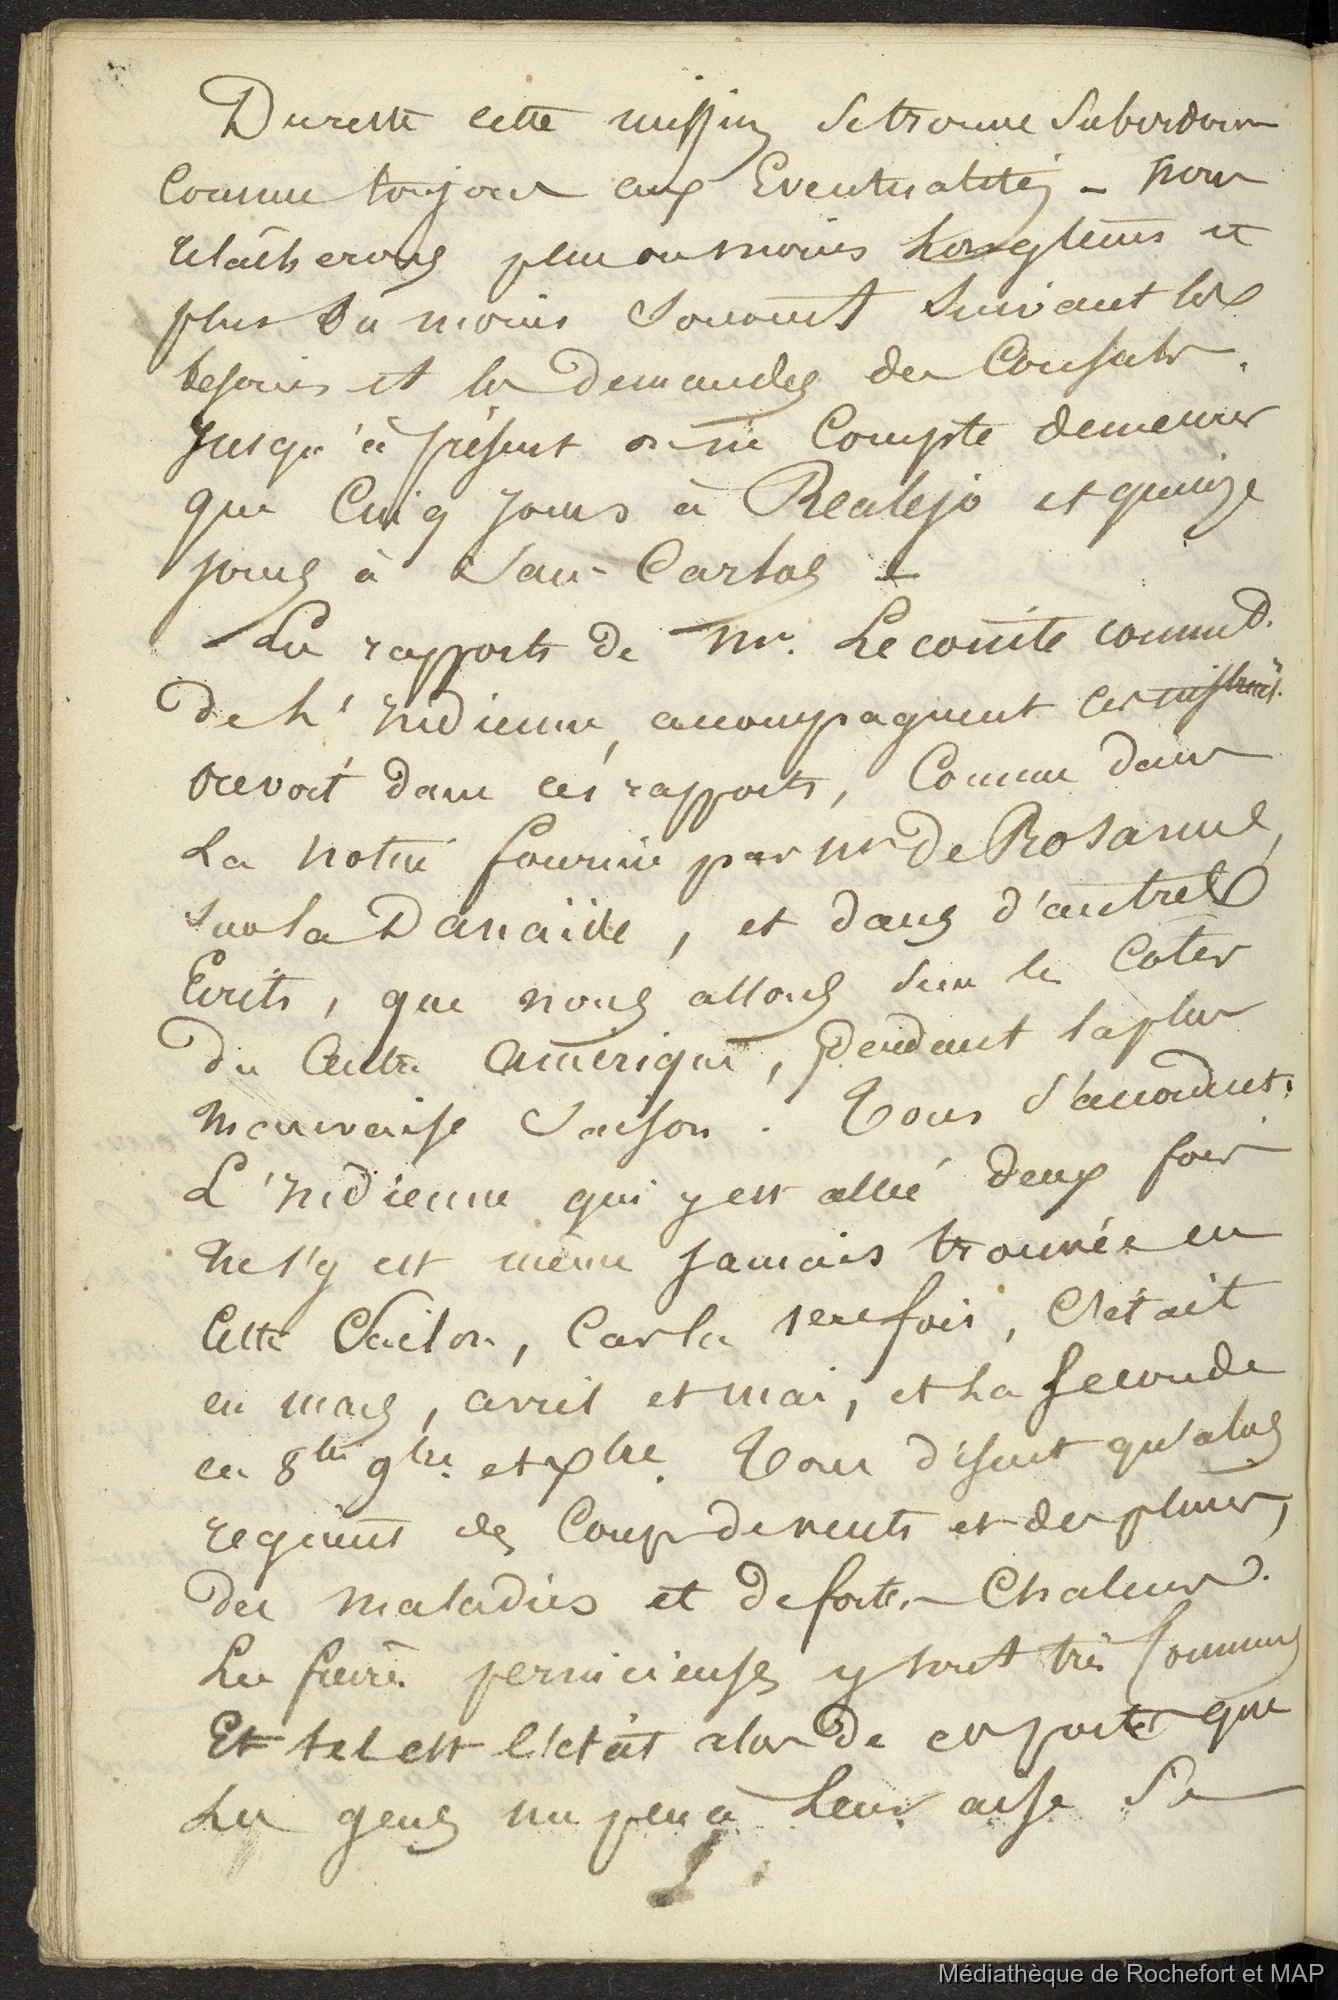 Dureste cette mission setrouve subordonn
comme toujours aux Eventualités - nous
relâcherons plus ou moins longtems et
plus ou moins souvent suivant les
besoins et les demandes des Consuls.
Jusqu'à présent on ne compte demeurer
que Cinq jours à Realejo et quinze
jours à San-Carlos -
Les rapports de Mr. Lecomte commd.
de L'Indienne, accompagnent ces instructs.
On voit dans ces rapports, Comme dans
La notice fournie par Mr De Rosamel,
sur la Danaïde, et dans d'autres
Ecrits, que nous allons sur les Cotes
du Centre Amérique, pendant la plus
mauvaise Saison. Tous s'accordent.
L'Indienne qui y est allée deux fois
ne s'y est même jamais trouvée en
Cette Saison, Car la 1ere fois, C'était
en mars, avril et mai, et La seconde
en 8bre 9bre et Xbre. Tous disent qu'alors
regnent des Coups de vents et des pluies,
des maladies et de fortes Chaleurs.
Les fièvres pernicieuses y sont très Communes
Et tel est l'état alors de ces ports que
Les gens un peu à Leur aise Se
Médiathèque de Rochefort et MAP